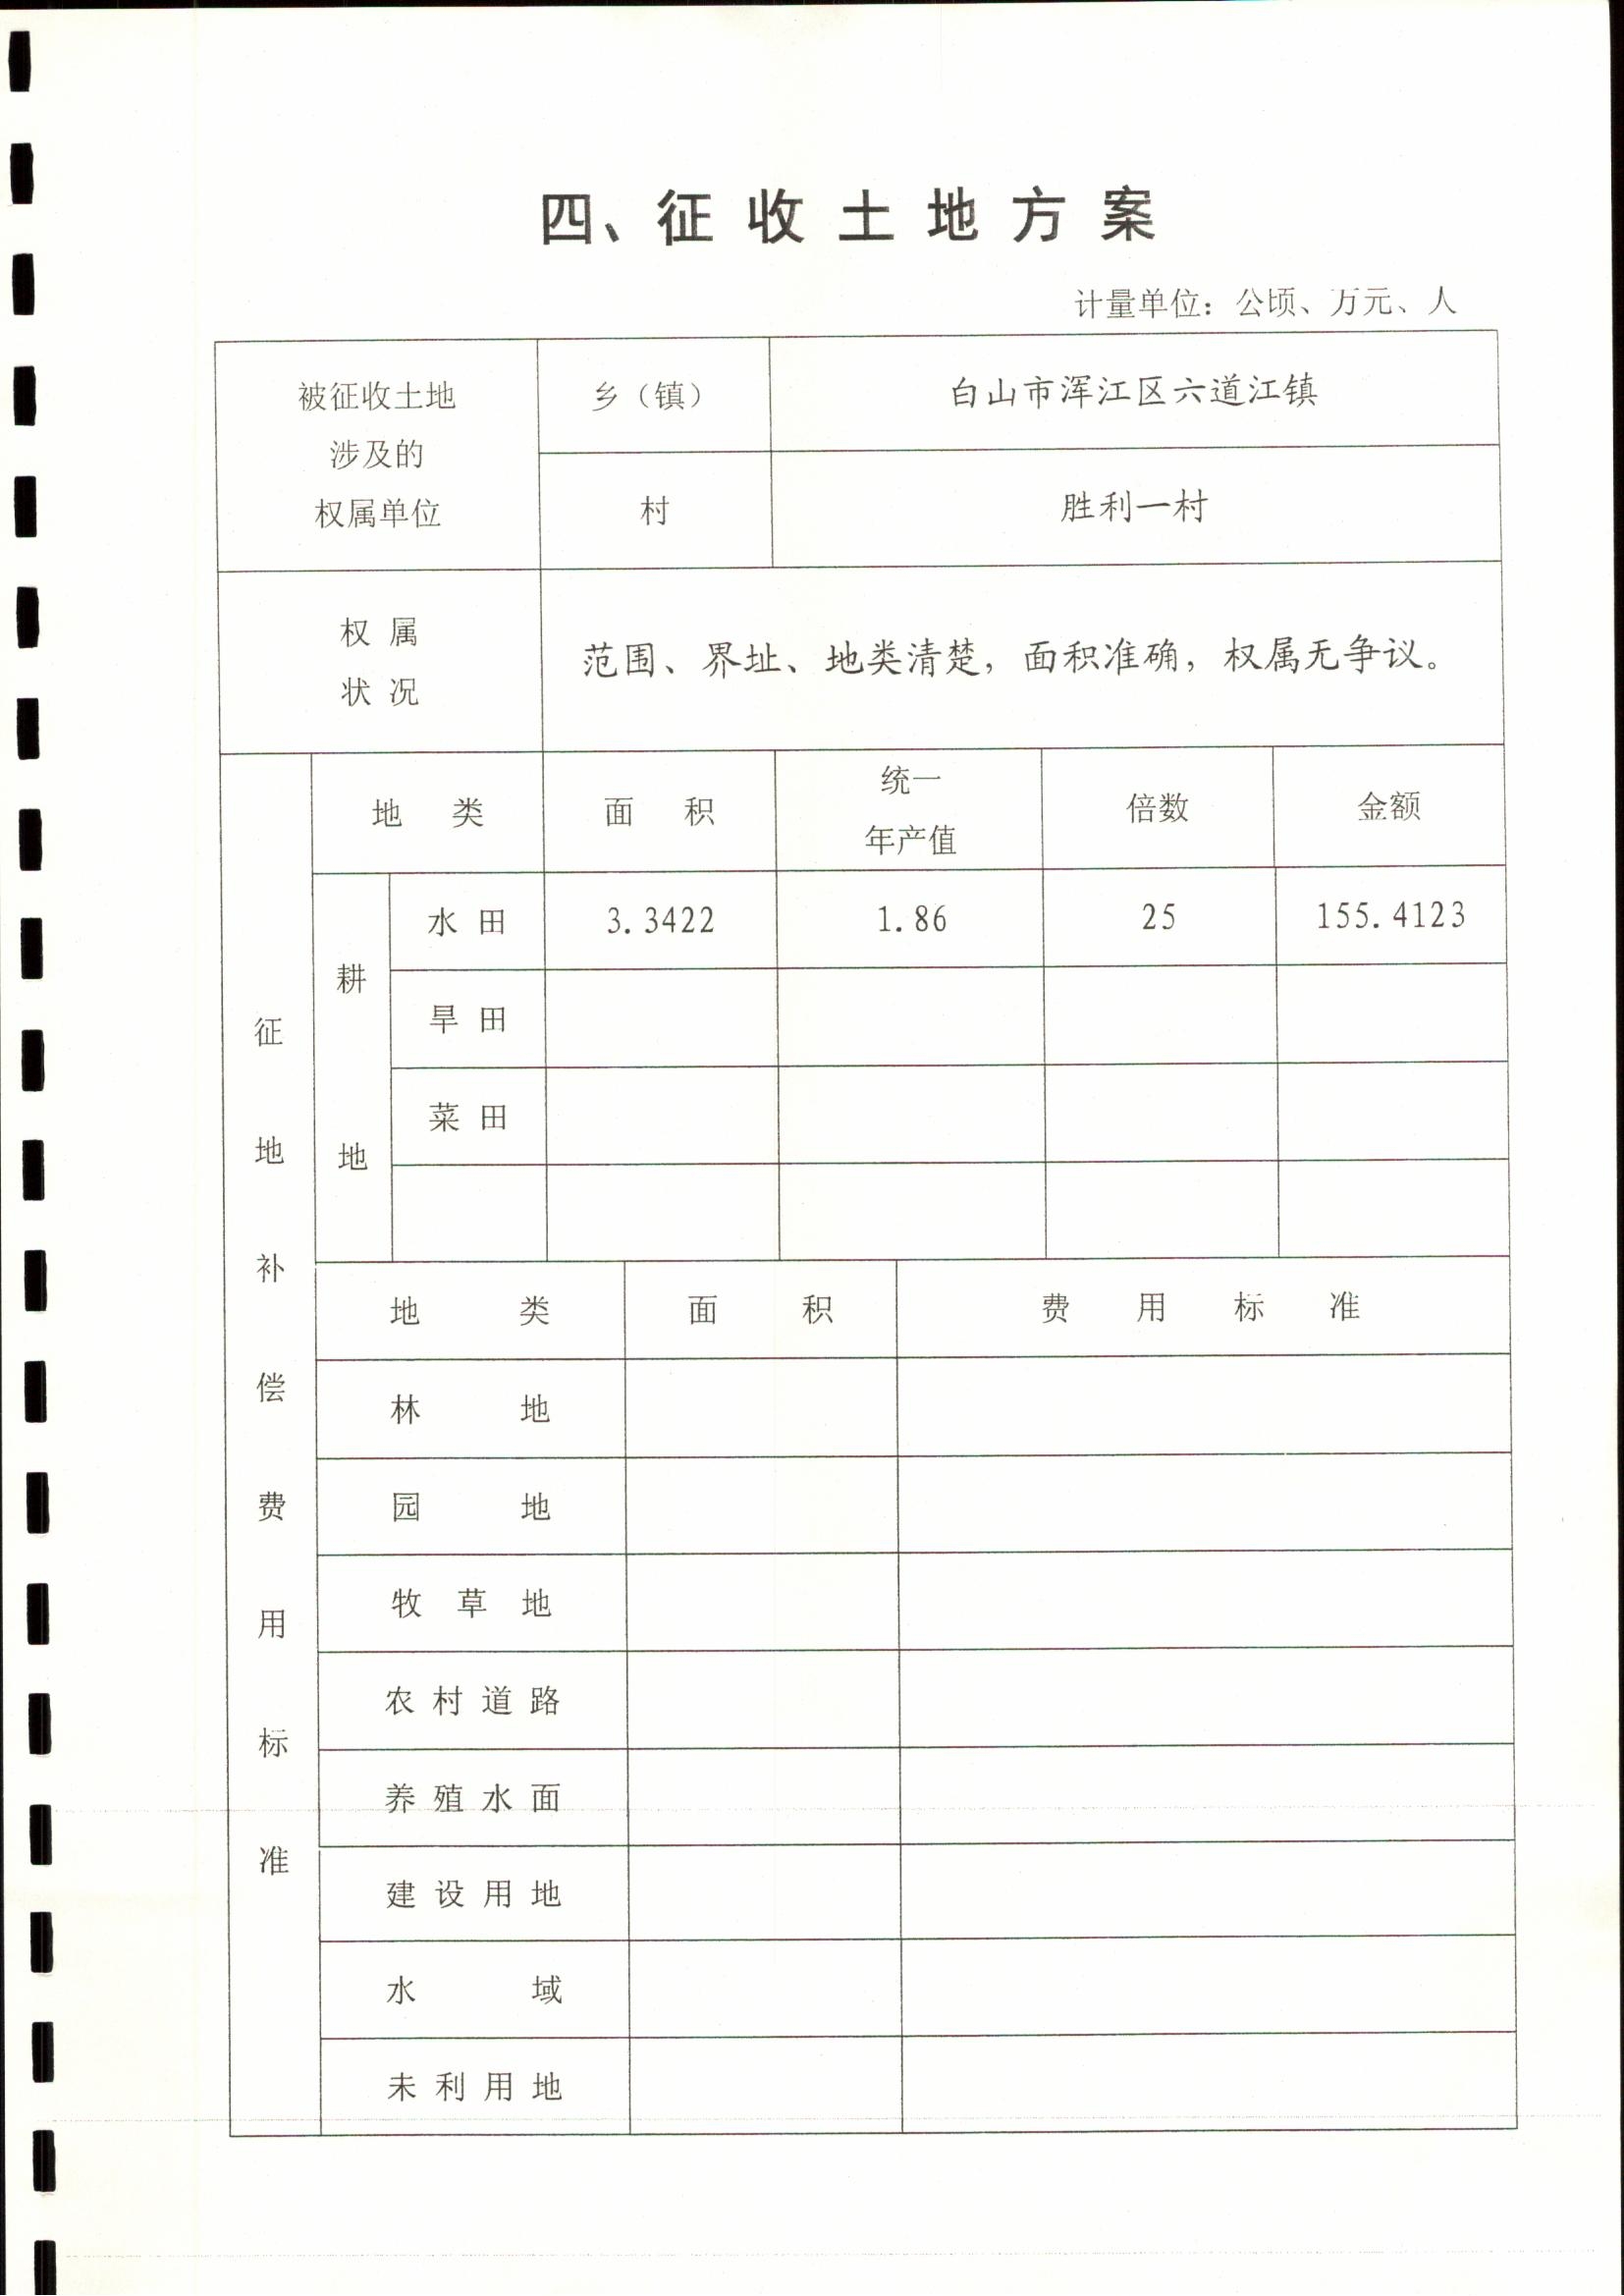 四、征收土地方案
计量单位：公顷、万元、人
被征收土地
涉及的
权属单位
乡（镇）
白山市浑江区六道江镇
村
胜利一村
权属
状况
范围、界址、地类清楚，面积准确，权属无争议。
征地补偿费用标准
地类
面积
统一
年产值
倍数
金额
耕地
水田
3.3422
1.86
25
155.4123
旱田
菜田
地类
面积
费用标准
林地
园地
牧草地
农村道路
养殖水面
建设用地
水域
未利用地